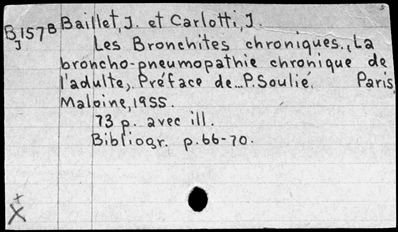 B157B Baillet, J. et Carlotti, J.
J
Les Bronchites chroniques., La
broncho-pneumopathie chronique de
l'adulte,. Préface de..P.Soulié. Paris,
Maloine, 1955.
73 p. avec ill.
Bibliogr. p.66-70.
X